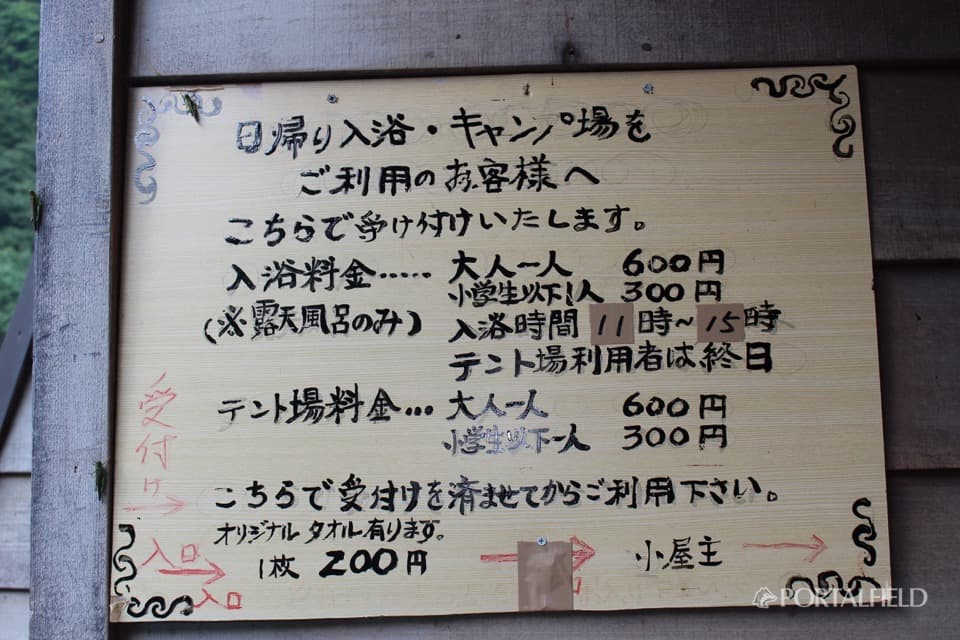 日帰り入浴・キャンプ場を
ご利用のお客様へ
こちらで受け付けいたします。
入浴料金…… 大人一人 600円
小学生以下1人 300円
(※露天風呂のみ) 入浴時間 11時~15時
テント場利用者は終日
テント場料金… 大人一人 600円
小学生以下一人 300円
こちらで受付けを済ませてからご利用下さい。
オリジナルタオル有ります。
1枚 200円
小屋主
受付け
入口
入口
PORTALFIELD